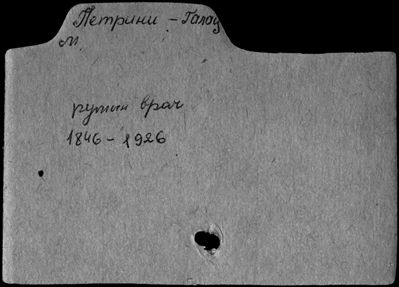 Петрини – Галац
М.
румын врач
1846 – 1926